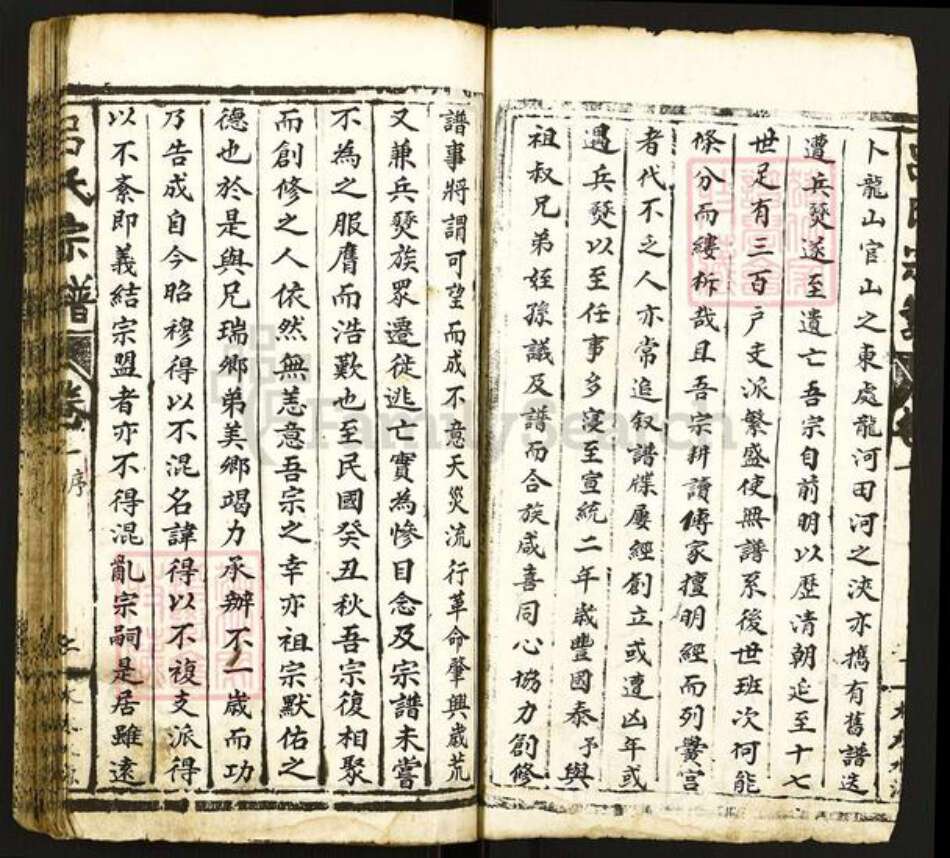 卜龍山官山之東處龍河田河之浹亦攜有舊譜迭
遭兵燹遂至遺亡吾宗自前明以歷清朝延至十七
世足有三百戶支派繁盛使無譜系後世班次何能
條分而縷析哉且吾宗耕讀傳家擅明經而列黌宮
者代不乏人亦常追叙譜牒屢經創立或遭凶年或
遇兵燹以至任事多寝至宣統二年歲豐國泰予與
祖叔兄弟姪孫議及譜而合族咸喜同心協力創修
譜事將謂可望而成不意天災流行革命肇興歲荒
又兼兵燹族眾遷徙逃亡實為慘目念及宗譜未嘗
不為之服膺而浩歎也至民國癸丑秋吾宗復相聚
而創修之人依然無恙意吾宗之幸亦祖宗默佑之
德也於是與兄瑞鄉弟美鄉竭力承辦不一歲而功
乃告成自今昭穆得以不混名諱得以不複支派得
以不紊即義結宗盟者亦不得混亂宗嗣是居雖遠
呂氏宗譜 卷一 序
FamilySearch